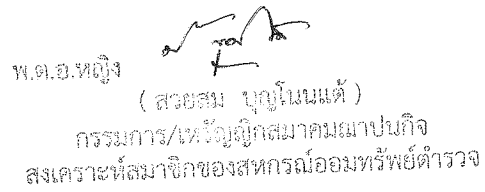 พ.ต.อ.หญิง
( สวยสม บุญโนนแต้ )
กรรมการ/เหรัญญิกสมาคมฌาปนกิจ
สงเคราะห์สมาชิกของสหกรณ์ออมทรัพย์ตำรวจ